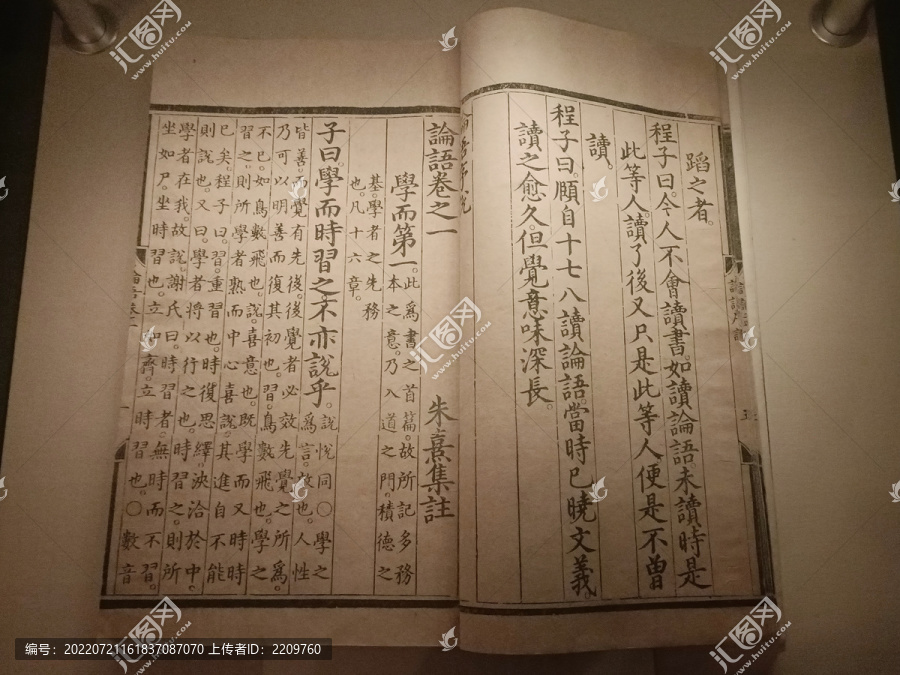 蹈之者。
程子曰。今人不會讀書。如讀論語。未讀時是
此等人。讀了後又只是此等人。便是不曾
讀。
程子曰。頤自十七八讀論語。當時已曉文義。
讀之愈久。但覺意味深長。
論語卷之一 朱熹集註
學而第一。此爲書之首篇。故所記多務
本之意。乃入道之門。積德之
基。學者之先務
也。凡十六章。
子曰。學而時習之。不亦說乎。說悅同○學之
爲言。效也。人性
皆善。而覺有先後。後覺者必效先覺之所爲。
乃可以明善而復其初也。習。鳥數飛也。學之
不已。如鳥數飛也。說。喜意也。既學而又時時
習之。則所學者熟而中心喜說。其進自不能
已矣。程子曰。習。重習也。時復思繹。浹洽於中。
則說也。又曰。學者將以行之也。時習之。則所
學者在我。故說。謝氏曰。時習者。無時而不習。
坐如尸。坐時習也。立如齊。立時習也。○數音
汇图网
www.huitu.com
编号：20220721161837087070 上传者ID：2209760